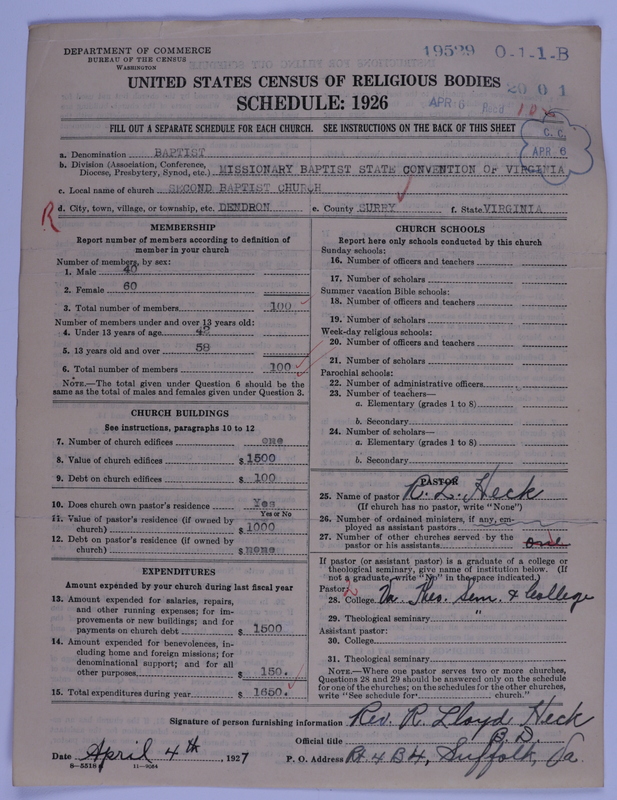 DEPARTMENT OF COMMERCE
BUREAU OF THE CENSUS
WASHINGTON
19529 0-1-1-B
UNITED STATES CENSUS OF RELIGIOUS BODIES
SCHEDULE: 1926
2001
APR 6 Recd 10
C. C.
APR 6
FILL OUT A SEPARATE SCHEDULE FOR EACH CHURCH. SEE INSTRUCTIONS ON THE BACK OF THIS SHEET
a. Denomination BAPTIST
b. Division (Association, Conference,
Diocese, Presbytery, Synod, etc.) MISSIONARY BAPTIST STATE CONVENTION OF VIRGINIA
c. Local name of church SECOND BAPTIST CHURCH
R d. City, town, village, or township, etc. DENDRON e. County SURRY f. State VIRGINIA
MEMBERSHIP
Report number of members according to definition of
member in your church
Number of members, by sex:
1. Male 40
2. Female 60
3. Total number of members 100
Number of members under and over 13 years old:
4. Under 13 years of age 42
5. 13 years old and over 58
6. Total number of members 100
NOTE.—The total given under Question 6 should be the
same as the total of males and females given under Question 3.
CHURCH BUILDINGS
See instructions, paragraphs 10 to 12
7. Number of church edifices one
8. Value of church edifices $ 1500
9. Debt on church edifices $ 100
10. Does church own pastor's residence Yes
Yes or No
11. Value of pastor's residence (if owned by
church) $ 1000
12. Debt on pastor's residence (if owned by
church) $ none
EXPENDITURES
Amount expended by your church during last fiscal year
13. Amount expended for salaries, repairs,
and other running expenses; for im-
provements or new buildings; and for
payments on church debt 1500
14. Amount expended for benevolences, in-
cluding home and foreign missions; for
denominational support; and for all
other purposes $ 150.
15. Total expenditures during year $ 1650.
CHURCH SCHOOLS
Report here only schools conducted by this church
Sunday schools:
16. Number of officers and teachers
17. Number of scholars
Summer vacation Bible schools:
18. Number of officers and teachers
19. Number of scholars
Week-day religious schools:
20. Number of officers and teachers
21. Number of scholars
Parochial schools:
22. Number of administrative officers
23. Number of teachers—
a. Elementary (grades 1 to 8)
b. Secondary
24. Number of scholars—
a. Elementary (grades 1 to 8)
b. Secondary
PASTOR
25. Name of pastor R. L. Heck
(If church has no pastor, write "None")
26. Number of ordained ministers, if any, em-
ployed as assistant pastors
27. Number of other churches served by the
pastor or his assistants one
If pastor (or assistant pastor) is a graduate of a college or
theological seminary, give name of institution below. (If
not a graduate, write "No" in the space indicated.)
Pastor: 2
28. College Va. Theo. Sem. & College
29. Theological seminary "
Assistant pastor:
30. College
31. Theological seminary
NOTE.—Where one pastor serves two or more churches,
Questions 28 and 29 should be answered only on the schedule
for one of the churches; on the schedules for the other churches,
write "See schedule for church."
Signature of person furnishing information Rev. R. Lloyd Heck
Official title B. D.
Date April 4th, 1927 P. O. Address Rt. 4 B 4, Suffolk, Va.
8—5518 11—9064